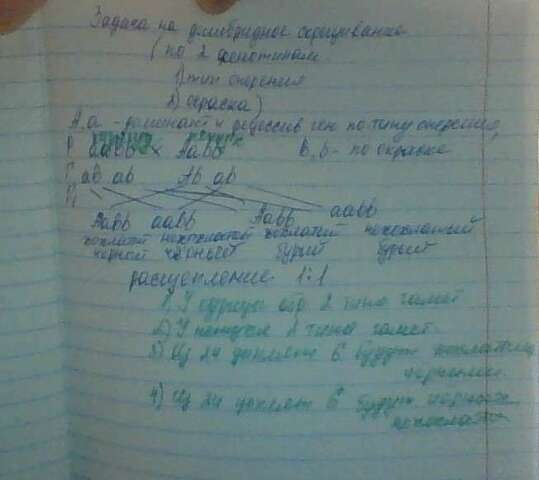 Задача на дигибридное скрещивание
(по 2 фенотипам
1) тип оперения
2) окраска)
A, a - доминант и рецессив ген по типу оперения,
P. aaBb x Aabb B, b - по окраске
G. aB ab Ab ab
F1
AaBb aaBb Aabb aabb
хохлатый нехохлатый хохлатый нехохлатый
черный черный бурый бурый
расщепление 1:1
1) У курицы обр. 2 типа гамет
2) У петуха 2 типа гамет.
3) Из 24 цыплят 6 будут хохлатыми
черными.
4) Из 24 цыплят 6 будут